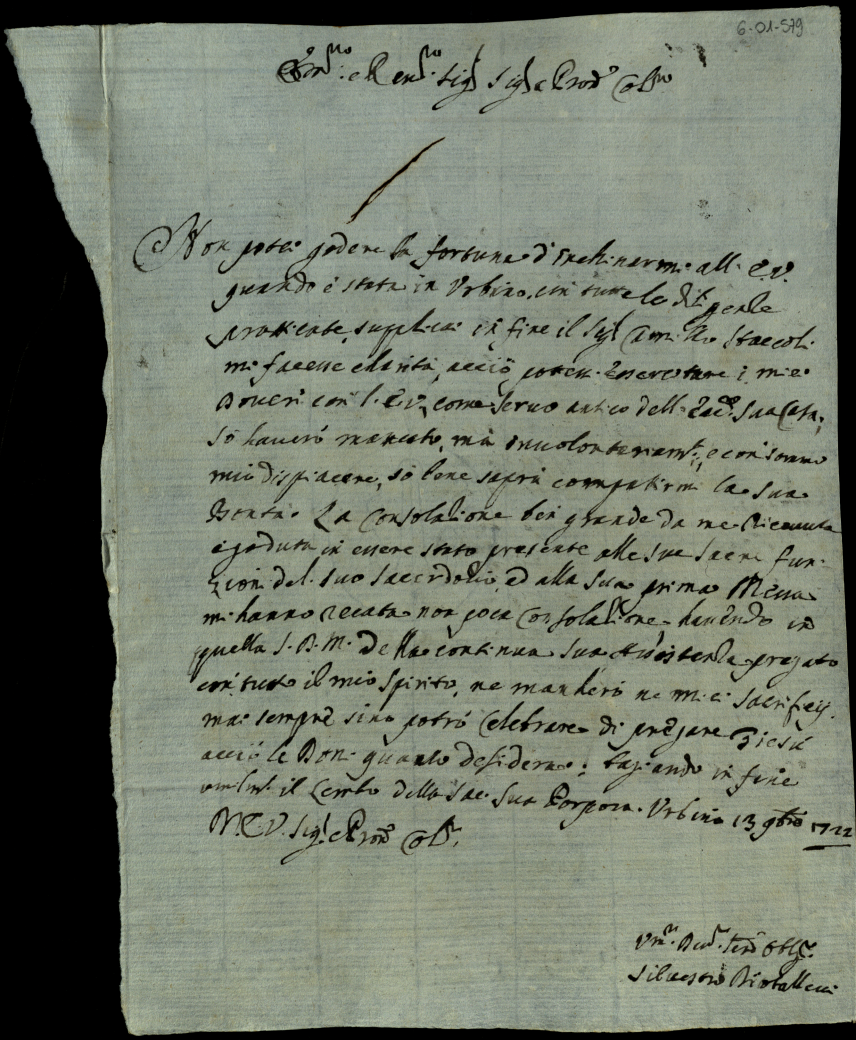 6-01-579
Em.mo e Rev.mo Sig.r Sig.r e Prod.e Col.mo
Non potei godere la fortuna d'inchinarmi all' E.V.
quando è stata in Urbino, con tutte le diligenze
pratticate, supplicai in fine il Sig.r Camillo Staccoli
mi facesse charità, acciò potessi esercitare i miei
Doveri con l'E.V. come servo antico dell' Ecc.ma Sua Casa;
sò haverò mancato, mà involontariam.te, e con sommo
mio dispiacere, sò bene saprà compatirmi la sua
Bontà. La consolatione ben grande da me ricevuta
e goduta in essere stato presente alle sue sacre fun-
zioni del suo sacerdotio, ed alla sua prima Messa
mi hanno recata non poca consolat.ne havendo in
quella S.D.M. della continua sua assistenza pregato
con tutto il mio spirito, ne mancherò ne miei sacrificij
mai sempre sino potrò celebrare di pregare Giesù
acciò le Doni quanto desidera; baciando in fine
il Lembo della Sac. Sua Porpora. Urbino 13 9bre 1722
D.V.E. Sig.r e Pron.e Col.
Um.o Dev.o Ser.e Obl.o
Silvestro